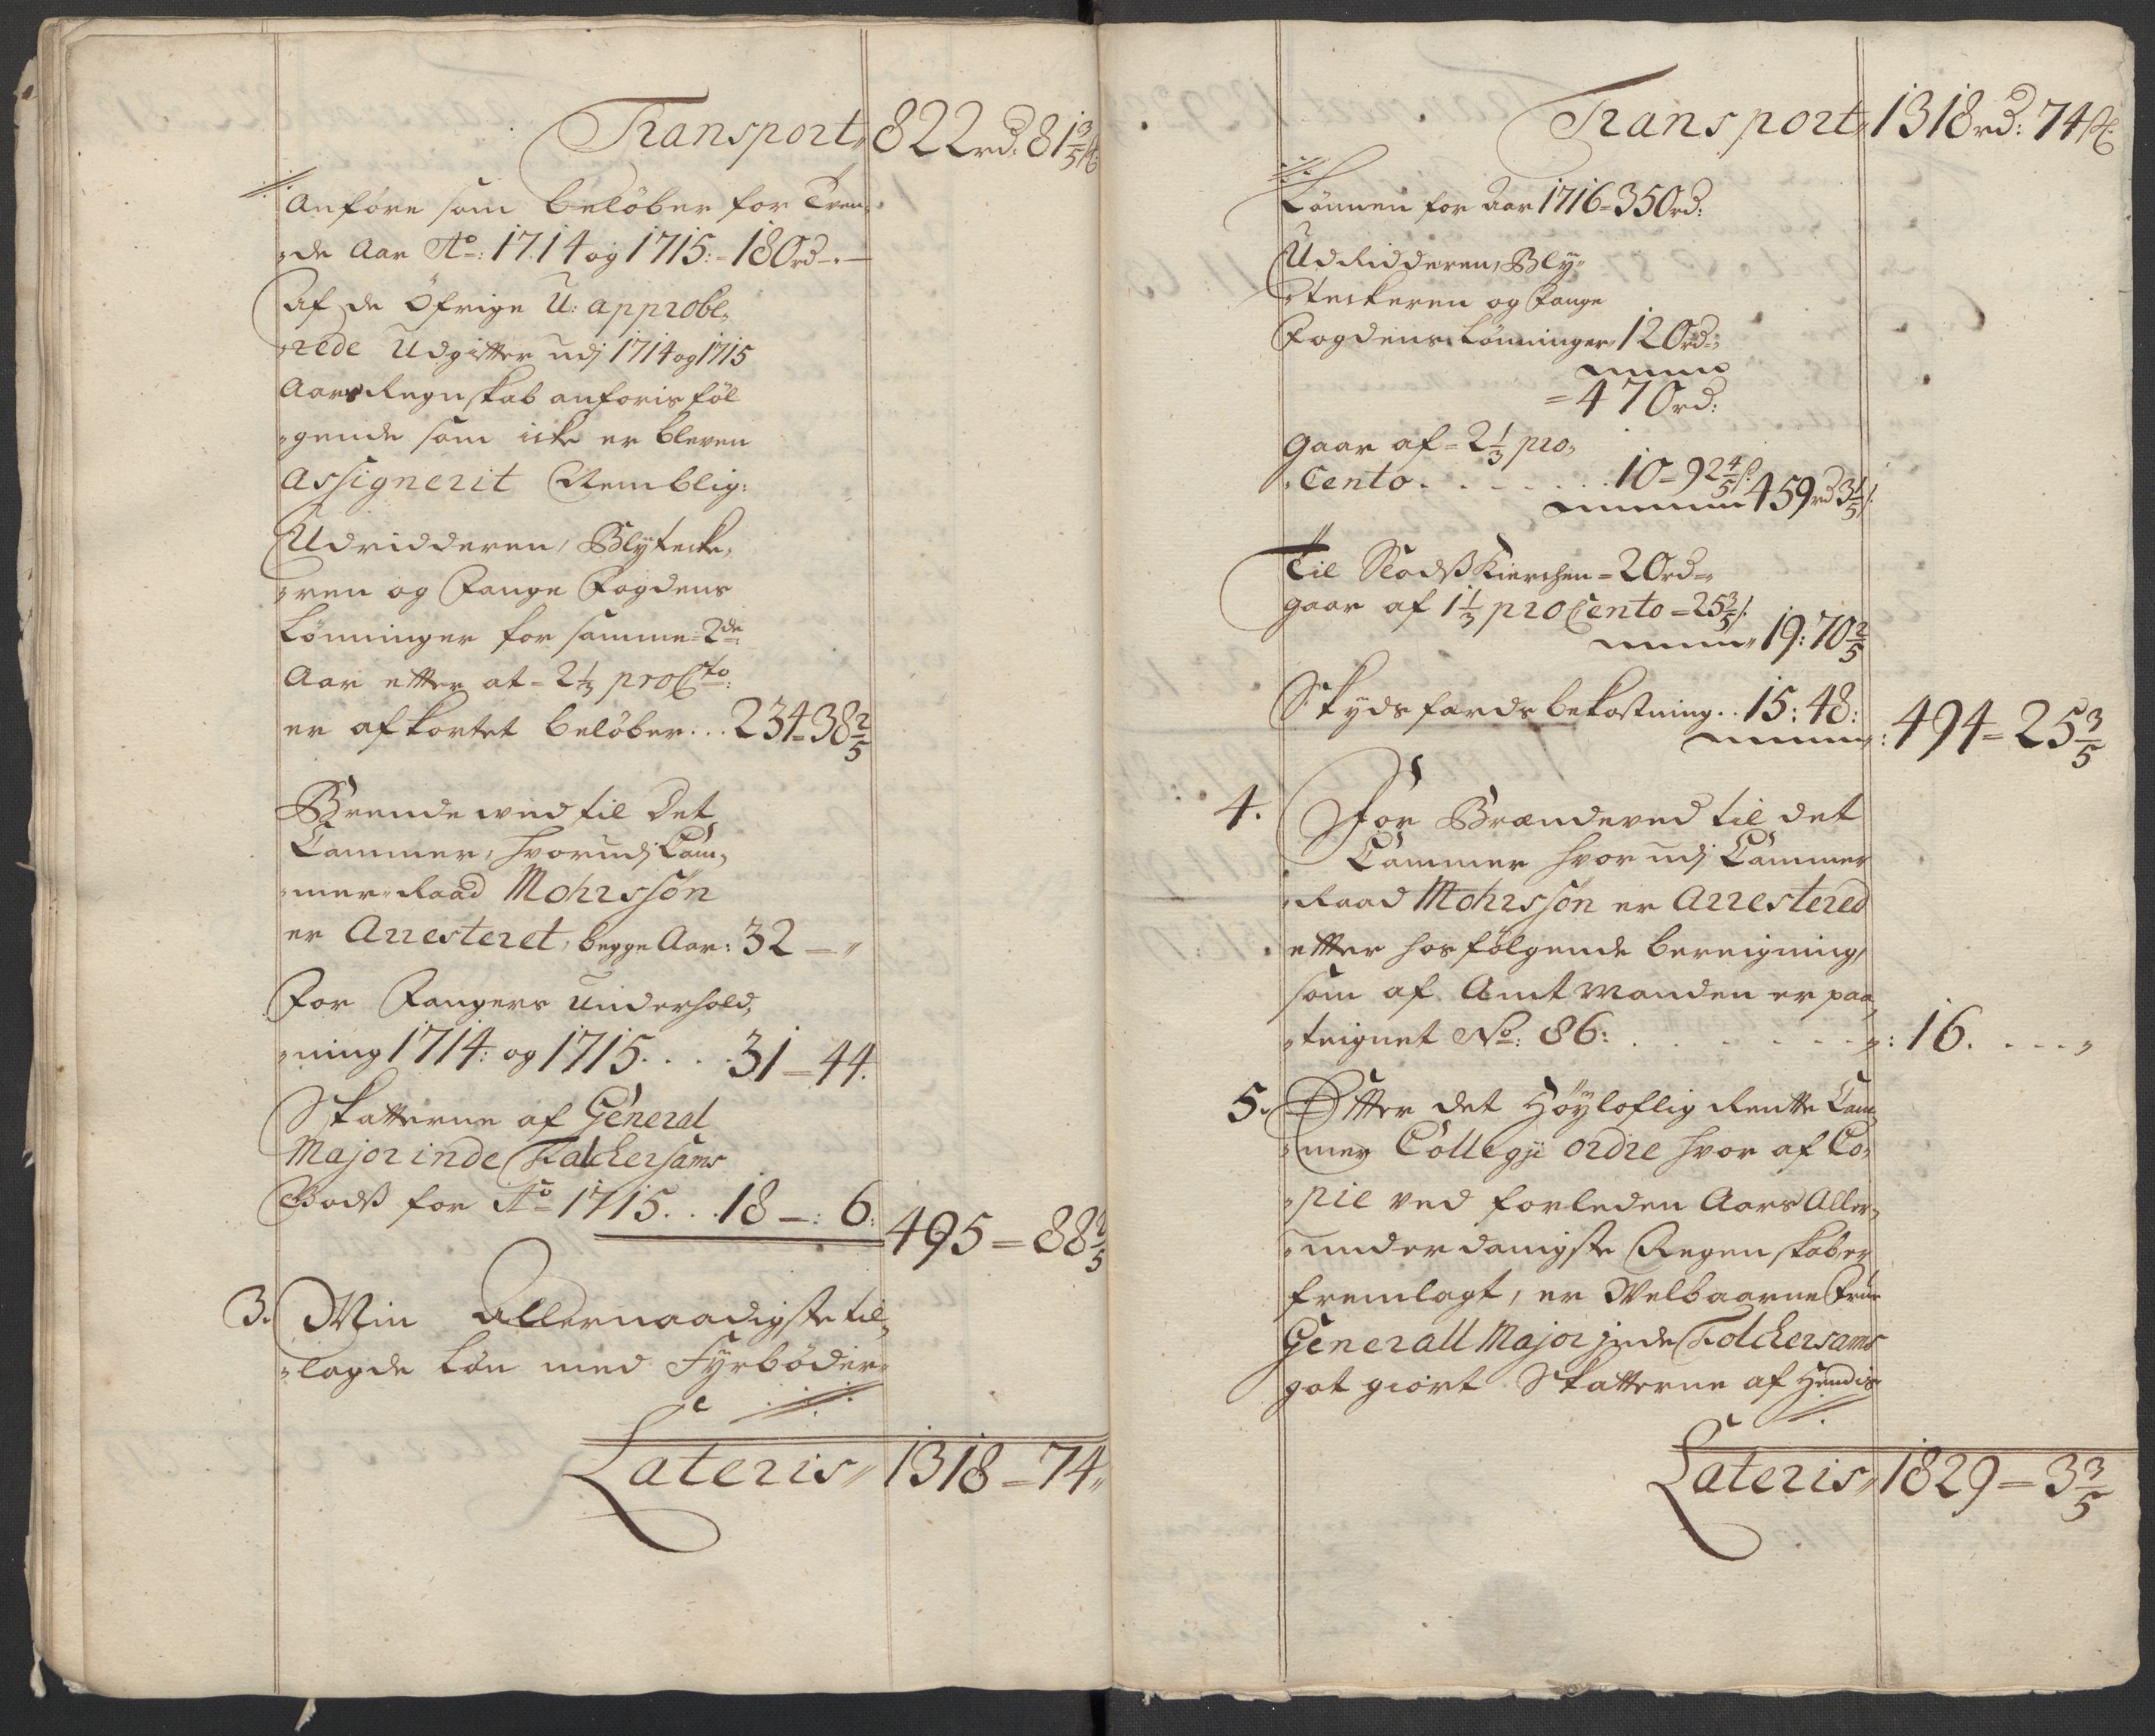 Transport,, 822rd: 81 3/5 ß
Anføre som beløber for Tven,
,de Aar Ao: 1714 og 1715: = 180rd – . –
Af de Öfrige U: approbe,
,rede Udgifter udj 1714 og 1715
Aars Regnskab anføris føl
,gende som icke er bleven
Assignerit Nemblig:
Udridderen, Blytecke,
,ren og Fange Fogdens
Lønninger for samme = 2de
Aar efter at = 2 1/3 proCto:
er afkortet beløber . . . 234 = 38 2/5
Brende wed til Det
Cammer, hvorudj Cam,
,mer Raad Mohrssøn
er Arresteret, begge Aar: 32 – ,,
For Fangers Underhold,
,ning 1714: og 1715. . . . 31 – 44.
Skatterne af General
Majorinde Falchersams
Godß for Ao 1715. . . 18 – : 6: 495 = 88 2/5
3. Min Allernaadigste til,
,lagde Løn med Fyrbøder
Lateris,, 1318 = 74,,
Transport,, 1318rd: 74 ß
Lønnen for Aar 1716 = 350rd:
UdRidderen, Bly,,
,teckeren og Fange
Fogdens Lønninger, 120rd:,
= 470rd:
Gaar af = 2 1/3 pro,
,Cento . . . . . . . 10 = 92 4/5 ß 459rd 3 1/5 ß
Til Slodß Kierchen = 20rd =,
gaar af 1 1/3 proCento = 25 3/5 ß
19: 70 2/5
Skydsfærds bekostning . . 15: 48: : 494 = 25 3/5
4. For Brændeved til det
Cammer hvor udj Cammer
,Raad Mohrssøn er Arrestered
efter hosfølgende bereigning,
som af Amtmanden er paa,
,teignet No: 86: . . . . . . . ,: 16. . . . ,,
5. Efter det Høyloflig Rentte Cam,
,mer Collegij ordre hvor af Co,
,pie ved forleden Aars Aller,
,underdanigste Regenskaber
fremlagt, er Welbaarne Frue
Generall Majorjnde Folchersams
got giort Skatterne af Hendis
Lateris,, 1829 = 3 3/5